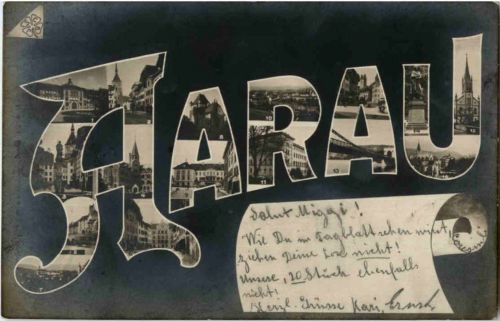 AARAU
Salut Miggi!
Wie Du im Tagblatt sehen wirst,
ziehen Deine Lose nicht!
Unsere 20 Stück ebenfalls
nicht!
Herzl. Grüsse Kari, Ernst